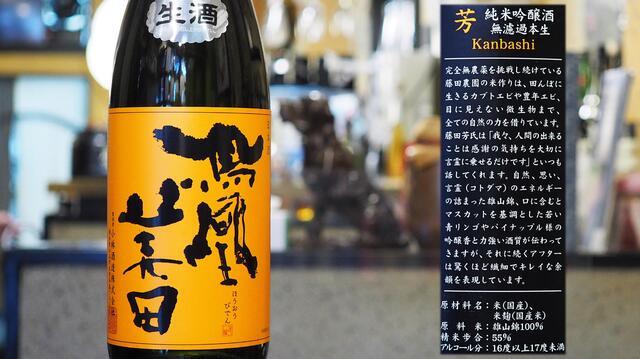 生酒
鳳凰
美田
ほうおう
びでん
小林酒造株式会社
芳 純米吟醸酒
無濾過本生
Kanbashi
完全無農薬を挑戦し続けている
藤田農園の米作りは、田んぼに
生きるカブトエビや豊年エビ、
目に見えない微生物まで、
全ての自然の力を借りています。
藤田芳氏は「我々、人間の出来る
ことは感謝の気持ちを大切に
言霊に乗せるだけです」といつも
話してくれます。自然、思い、
言霊(コトダマ)のエネルギー
の詰まった雄山錦、口に含むと
マスカットを基調とした若い
青リンゴやパイナップル様の
吟醸香と力強い酒質が伝わって
きますが、それに続くアフター
は驚くほど繊細でキレイな余
韻を表現しています。
原材料名:米(国産)、
米麹(国産米)
原料米:雄山錦100%
精米歩合:55%
アルコール分:16度以上17度未満